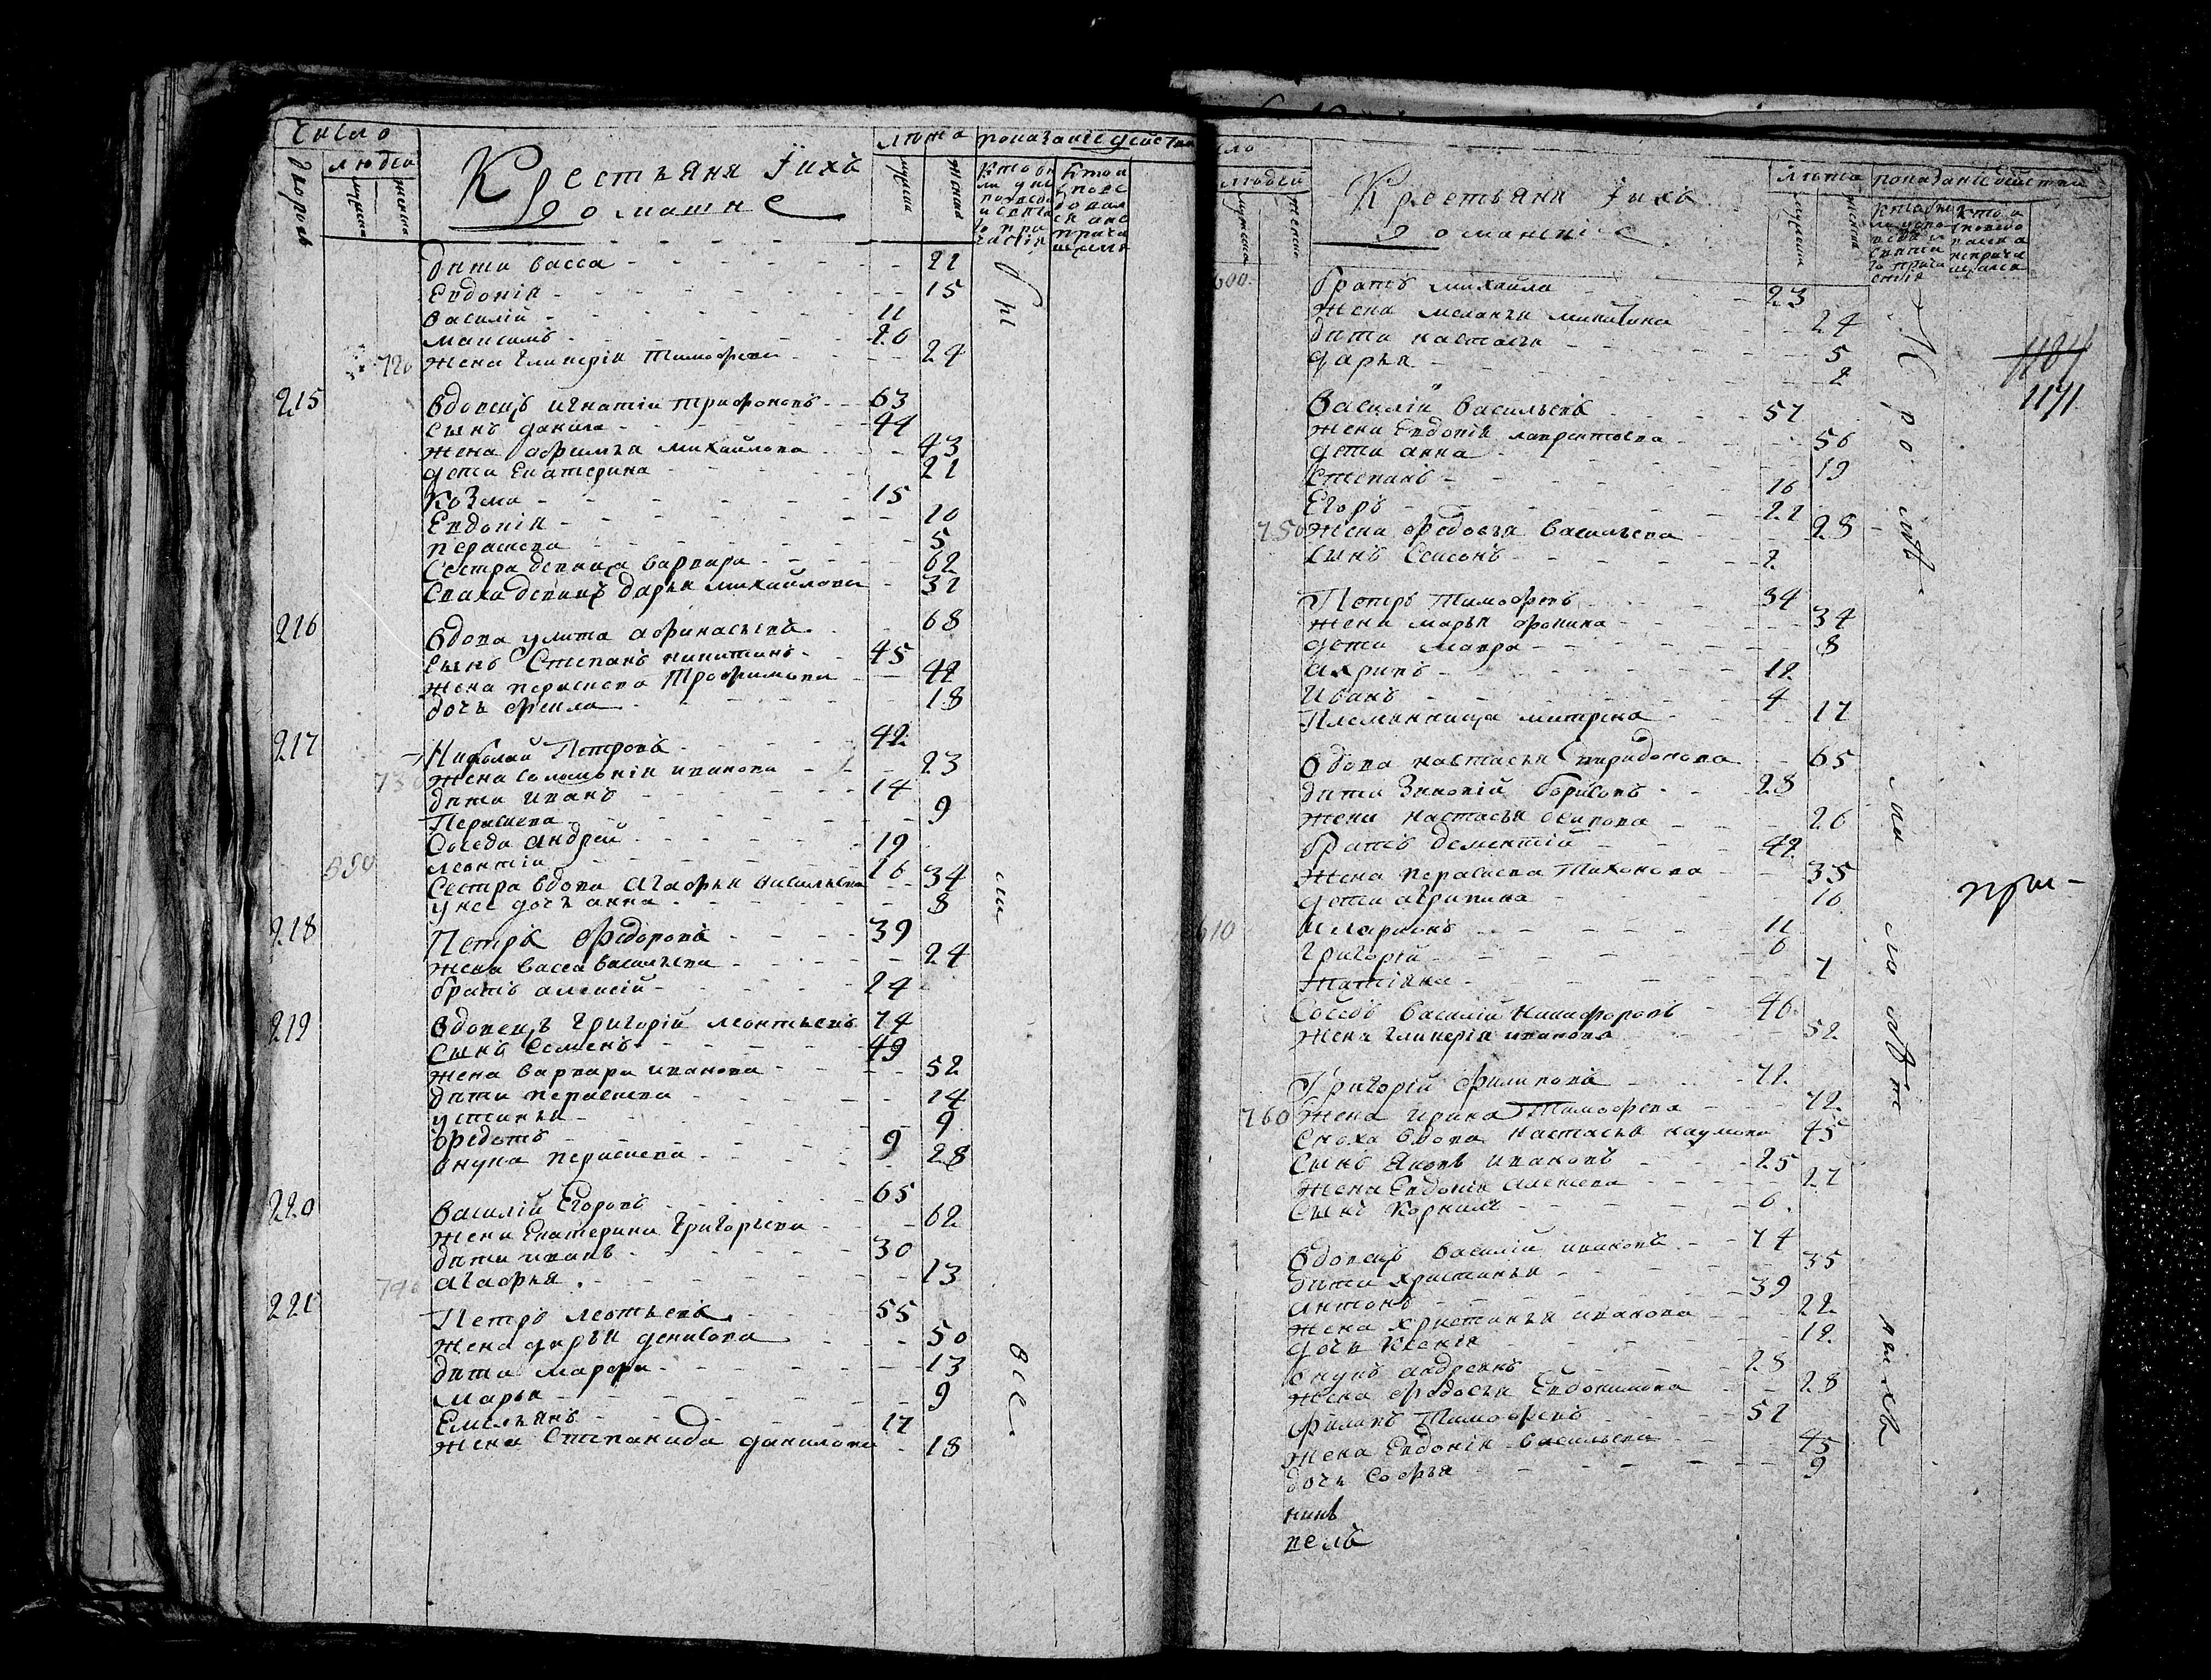 Число
лѣта показаніе действ
людей
дворовъ
мужеска
женска
Крестьяня Ӱихъ
домашне
мужска
женска
дѣти васса 22
Евдокія 15
василій 11
максимъ 20
720 жена гликерія тимофѣева 24
215 вдовецъ игнатій трифоновъ 63
сынъ данила 44
жена афимья михайлова 43
дети Екатерина 21
Козма 15
Евдокія 10
параскева 5
Сестра девица варвара 62
дарья михайлова 32
216 вдова улита афонасьева 68
сынъ Степанъ никитинъ 45
жена параскева Трофимова 42
дочь фекла 18
217 Николай Петровъ 42
730 жена соломонія иванова 23
дѣти иванъ 14
Параскева 9
Соседа андрей 19
590 леонтій 16
Сестра вдова агафья васильева 34
у нее дочь анна 8
218 Петръ Федоровъ 39
жена васса васильева 24
братъ алексей 24
219 вдовецъ григорій леонтьевъ 74
Сынъ Семенъ 49
жена варвара иванова 52
дѣти параскева 14
устинья 9
федотъ 9
внука параскева 28
220 василій Егоровъ 65
жена Екатерина григорьева 62
дѣти иванъ 30
740 агафья 13
221 Петръ леотьевъ 55
жена дарья денисова 50
дѣти марфа 13
марья 9
Емельянъ 17
жена Степанида данилова 18
бы
ли
все
ло
людей
мужеска
женска
Крестьяня Ӱихъ
домашніе
лѣта показаніе действа
мужска
женска
600 братъ михайла 23
жена меланья микитина 24
дѣти настасья 5
дарья 2
1184
1171
Василій васильевъ 57
жена Евдокія лаврентьева 56
дети анна 19
Степанъ 16
Егоръ 22
750 жена федосья васильева 28
сынъ Самсонъ 2
Петръ тимофѣевъ 34
жена марья фокина 34
дети мавра 8
ахрипъ 12
Иванъ 4
Племянница матрена 17
вдова настасья Спиридонова 65
дѣти Зиновій борисовъ 28
жена настасья осипова 26
братъ дементій 42
жена параскева тихонова 35
дети агрипина 16
610 иларионъ 11
григорій 6
татіяна 7
Соседъ василій никифоровъ 46
жена гликерія иванова 52
Григорій филиповъ 72
760 жена ирина тимофѣева 72
Сноха вдова настасья наумова 45
Сынъ яковъ ивановъ 25
жена Евдокія алексева 27
Сынъ корнилъ 6
вдовецъ василій ивановъ 74
дѣти христинья 35
антонъ 39
жена христинья иванова 22
дочь ксенія 12
внукъ андреянъ 28
жена федосья Евдокимова 28
филипъ тимофѣевъ 52
жена Евдокія васильева 45
дочь софья 9
никъ
велъ
Кро
мѣ
ма
ло
лѣт
нихъ
при-